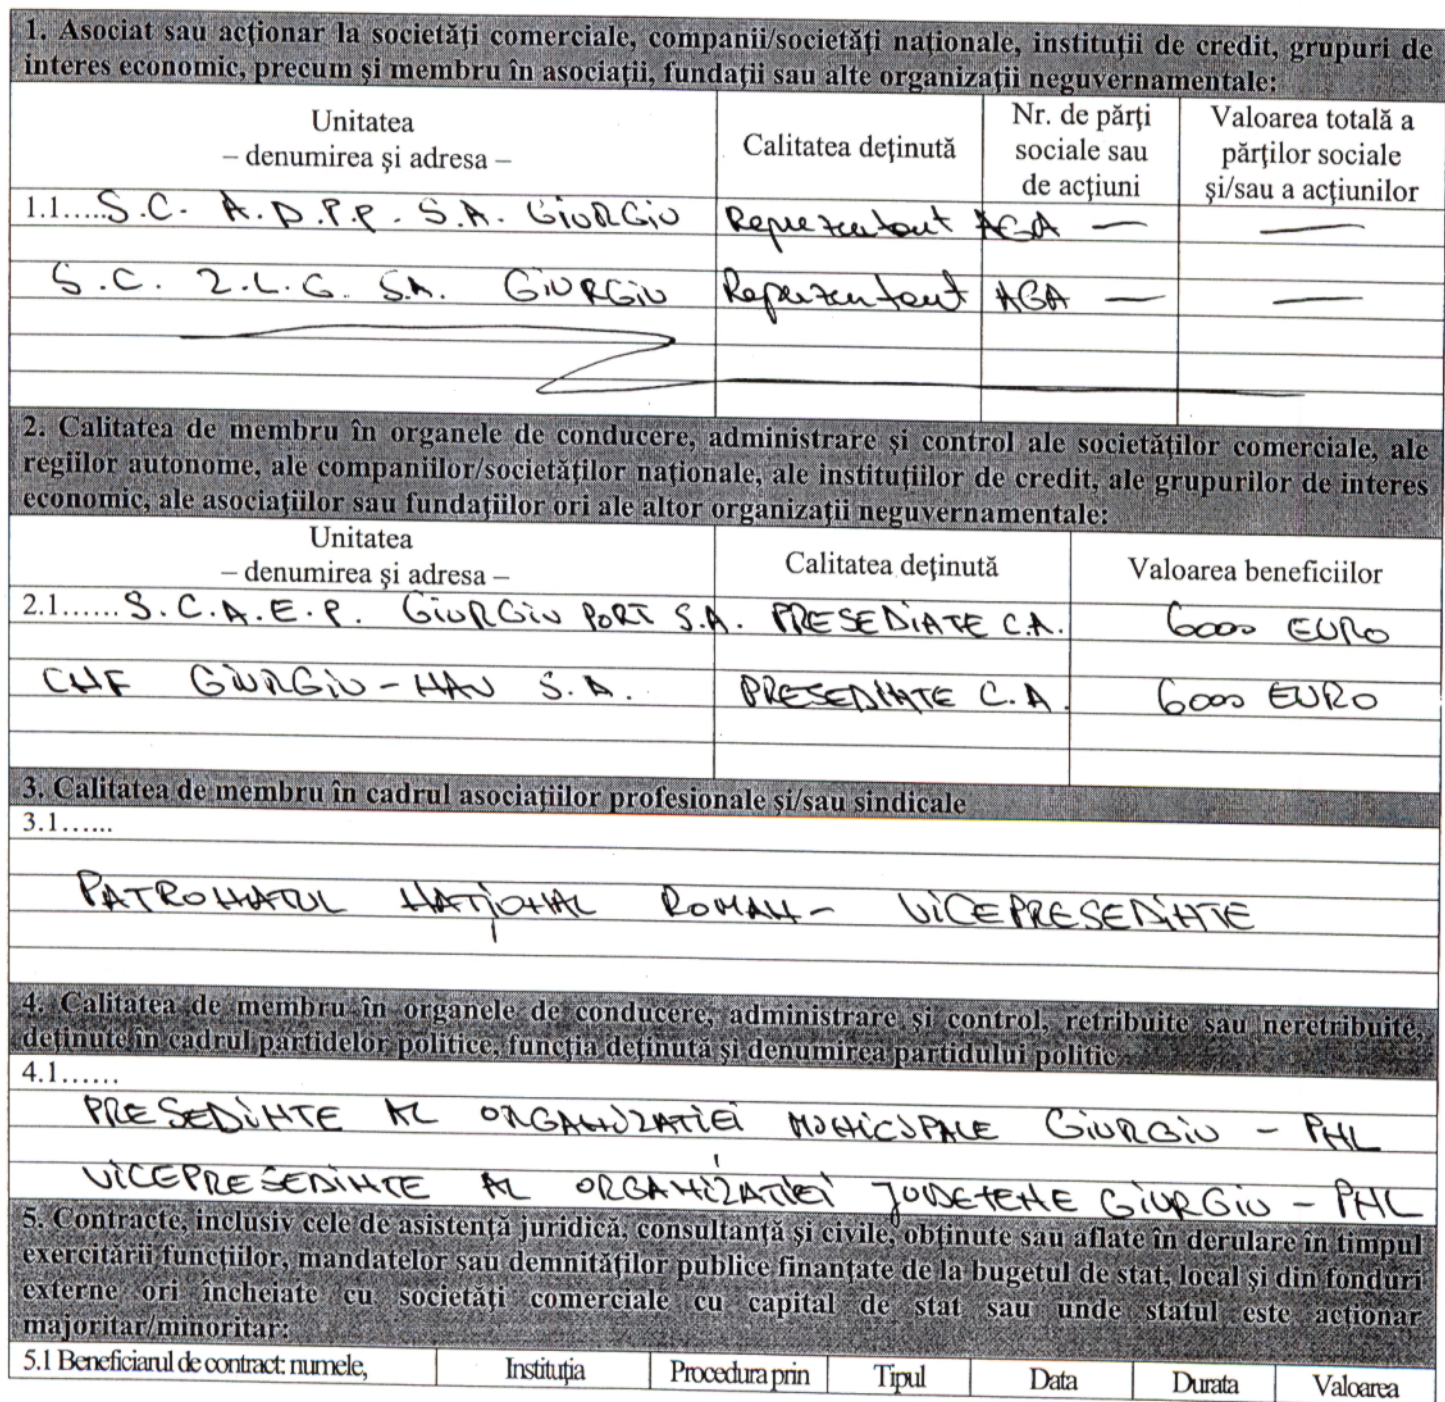 1. Asociat sau acţionar la societăţi comerciale, companii/societăţi naţionale, instituţii de credit, grupuri de
interes economic, precum şi membru în asociaţii, fundaţii sau alte organizaţii neguvernamentale:
Unitatea
– denumirea şi adresa –
Calitatea deţinută
Nr. de părţi
sociale sau
de acţiuni
Valoarea totală a
părţilor sociale
şi/sau a acţiunilor
1.1.....S.C. A.D.P.P. S.A. GIURGIU Reprezentant AGA — —
S.C. 2.L.G. S.A. GIURGIU Reprezentant AGA — —
2. Calitatea de membru în organele de conducere, administrare şi control ale societăţilor comerciale, ale
regiilor autonome, ale companiilor/societăţilor naţionale, ale instituţiilor de credit, ale grupurilor de interes
economic, ale asociaţiilor sau fundaţiilor ori ale altor organizaţii neguvernamentale:
Unitatea
– denumirea şi adresa –
Calitatea deţinută
Valoarea beneficiilor
2.1......S.C.A.E.P. GIURGIU PORT S.A. PRESEDINTE C.A. 6000 EURO
CNF GIURGIU-NAV S.A. PRESEDINTE C.A. 6000 EURO
3. Calitatea de membru în cadrul asociaţiilor profesionale şi/sau sindicale
3.1......
PATRONATUL NAŢIONAL ROMAN - VICEPRESEDINTE
4. Calitatea de membru în organele de conducere, administrare şi control, retribuite sau neretribuite,
deţinute în cadrul partidelor politice, funcţia deţinută şi denumirea partidului politic
4.1......
PRESEDINTE AL ORGANIZATIEI MUNICIPALE GIURGIU - PNL
VICEPRESEDINTE AL ORGANIZATIEI JUDETENE GIURGIU - PNL
5. Contracte, inclusiv cele de asistenţă juridică, consultanţă şi civile, obţinute sau aflate în derulare în timpul
exercitării funcţiilor, mandatelor sau demnităţilor publice finanţate de la bugetul de stat, local şi din fonduri
externe ori încheiate cu societăţi comerciale cu capital de stat sau unde statul este acţionar
majoritar/minoritar:
5.1 Beneficiarul de contract: numele, Instituţia Procedura prin Tipul Data Durata Valoarea